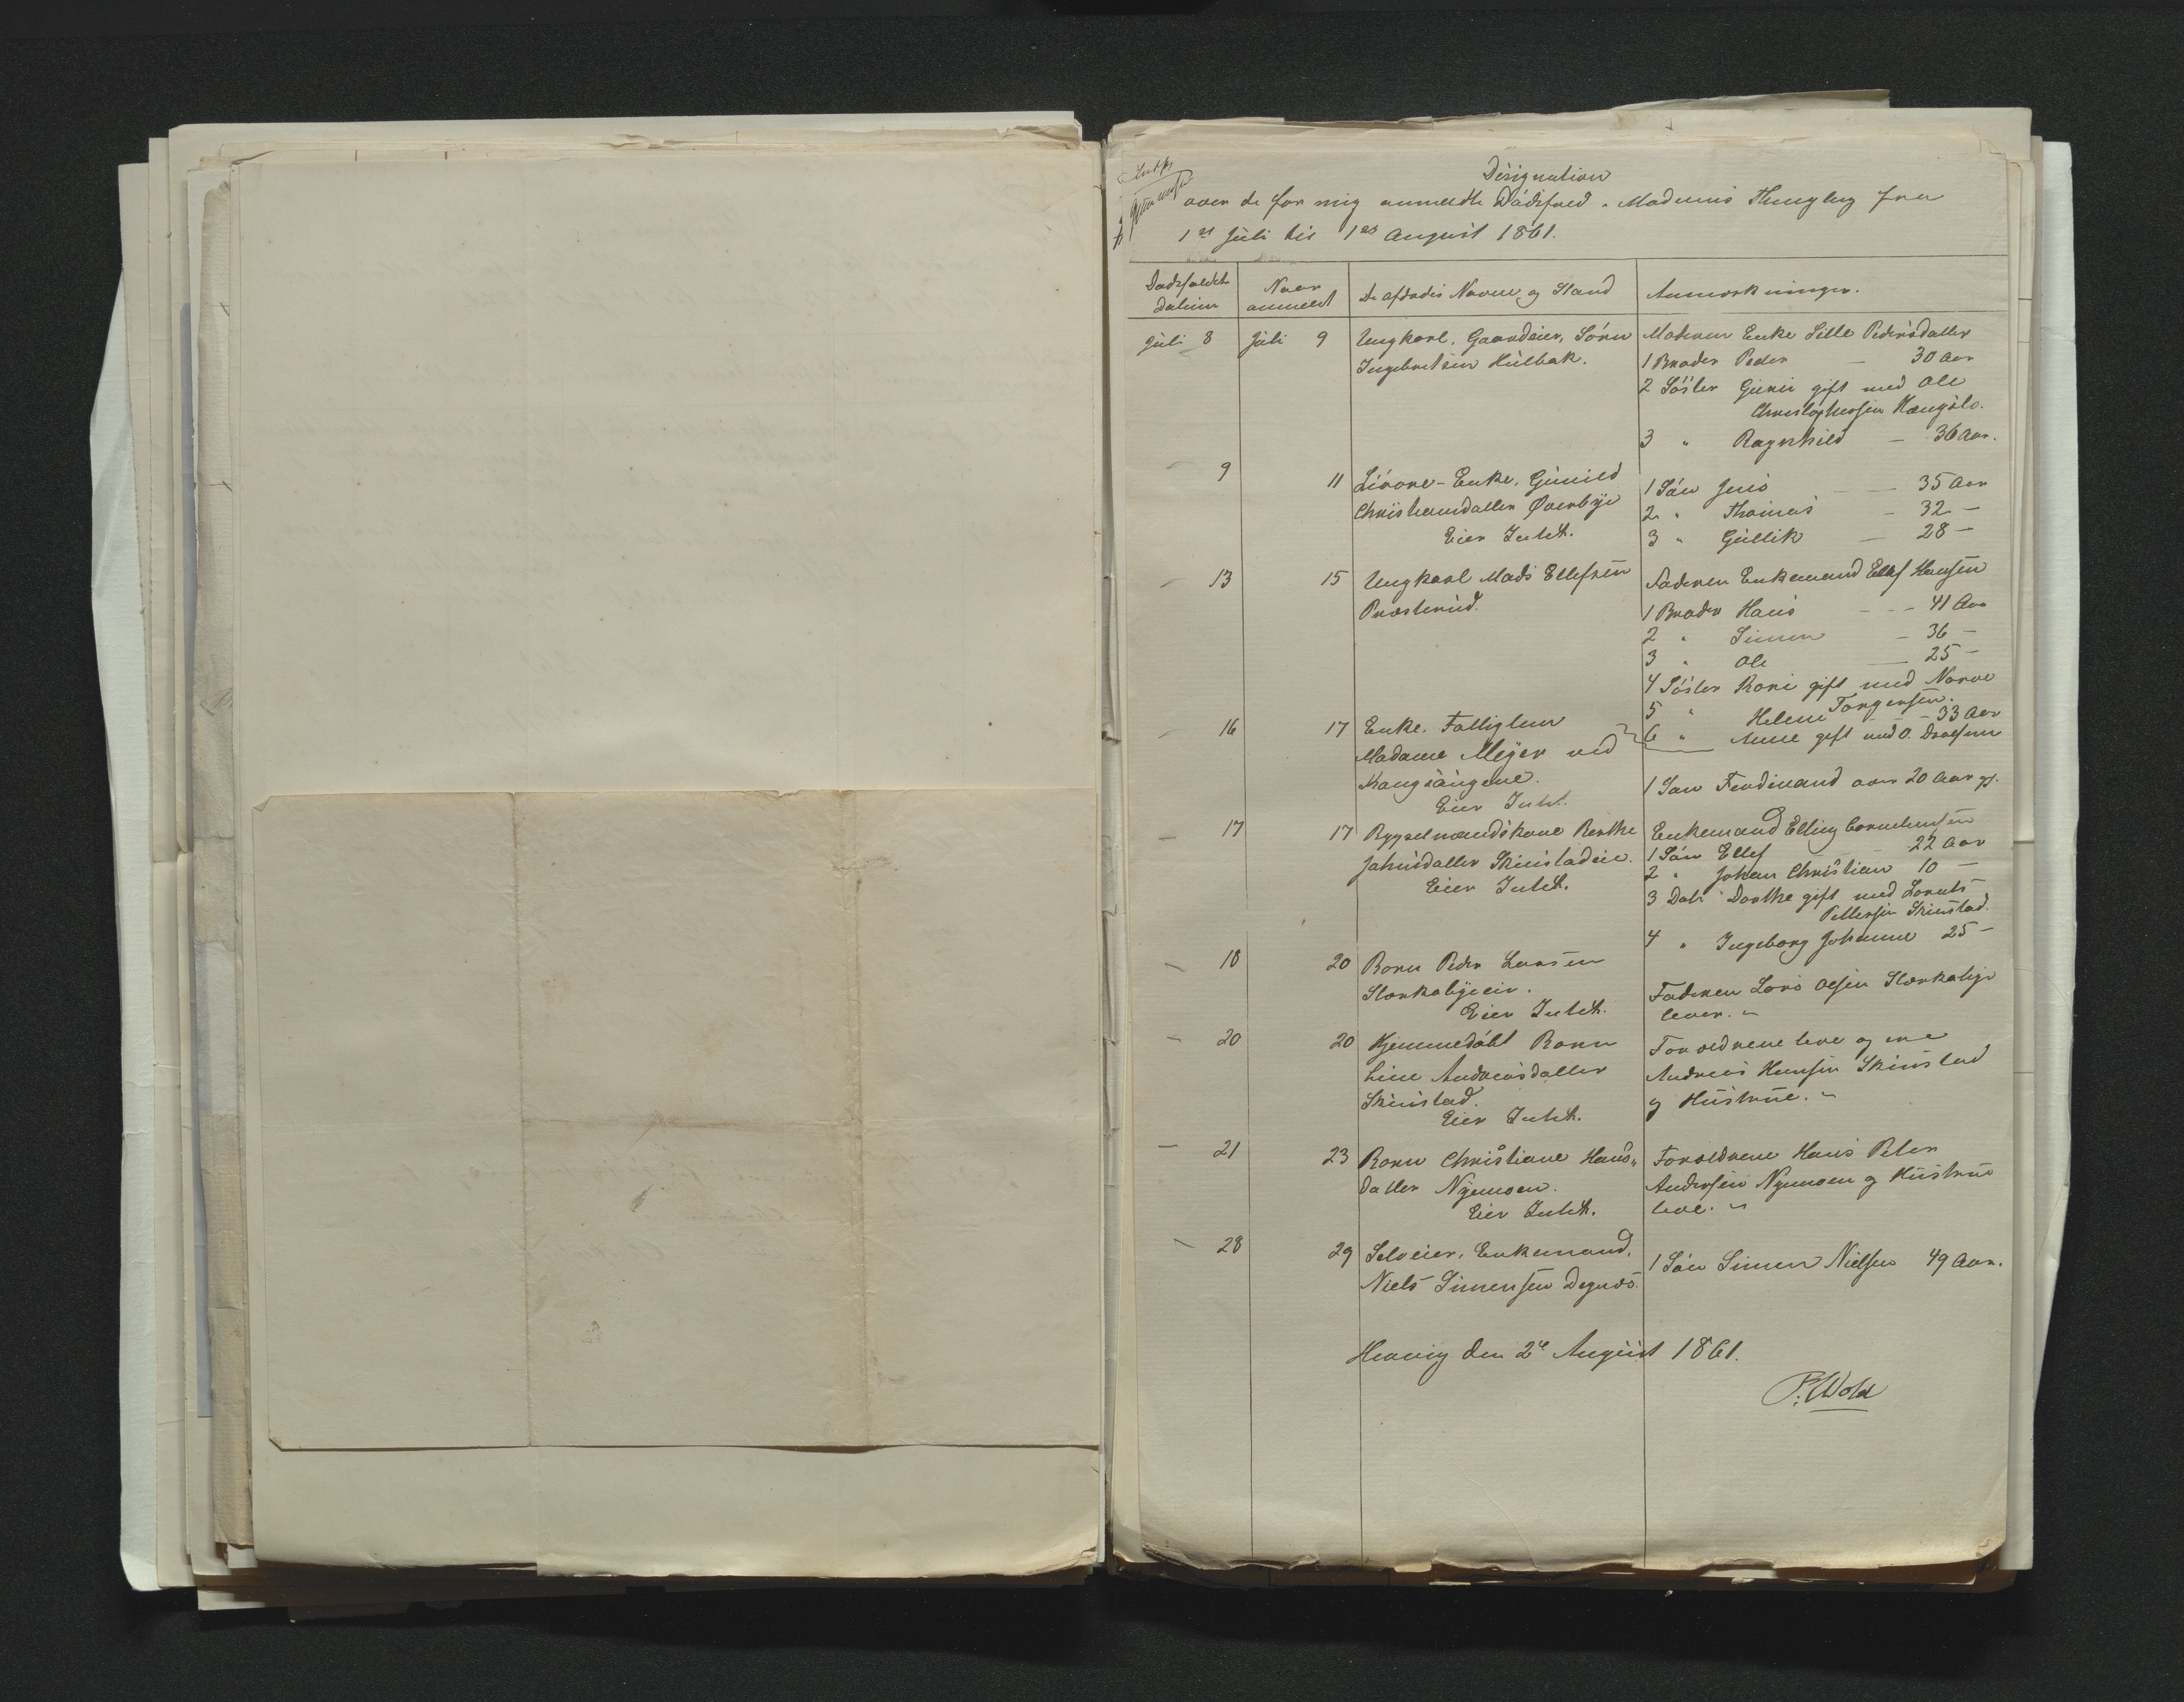 Designation
over de for mig anmeldte Dødsfald i Modums Thinglag fra
1st Juli til 1st August 1861.
Dødsfaldets Datum
Naar anmeldt
De afdødes Navne og Stand
Anmærkninger.
Juli 8 Juli 9 Ungkarl, Gaardeier, Søren Moderen Enke Sille Pedersdatter
Ingebretsen Hulbak. 1 Broder Peder — 30 Aar
2 Søster Guri gift med Ole
Christophersen
3 " Ragnhild — 36 Aar.
— 9 11 Enke, Gunild 1 Søn Jens — 35 Aar
Christiansdatter Øverbye 2 " Thomas — 32 —
Eier Intet. 3 " Gullik — 28 —
— 13 15 Ungkarl Mads Ellefsen Faderen Enkemand Ellef Hansen
Præsterud. 1 Broder Hans — 41 Aar
2 " Simen — 36 —
3 " Ole — 25 —
4 Søster Kari gift med Narve
Torgersen.
5 " Helene — 33 Aar
— 16 17 Enke. Fattiglem 6 " Anne gift med O.
Madame Mejer ved
Kongssaugene. 1 Søn Ferdinand over 20 Aar gl.
Eier Intet.
— 17 17 Berthe Enkemand Elling Corneliussen
Johnsdatter Skinstadeie. 1 Søn Ellef — 22 Aar
Eier Intet. 2 " Johan Christian 10 —
3 Datr Dorthe gift med Lorents
Pettersen Skinstad.
4 " Ingeborg Johanne 25 —
— 18 20 Barn Peder Larsen
Størkabyeie. Faderen Lars Olsen Størkabye
Eier Intet. lever. "
— 20 20 Hjemmedøbt Barn Forældrene leve og ere
Line Andreasdatter Andreas Hansen Skinstad
Skinstad. og Hustrue. "
Eier Intet.
— 21 23 Barn Christiane Hans- Forældrene Hans Peter
datter Nymoen. Andersen Nymoen og Hustrue
Eier Intet. leve. "
— 28 29 Selveier, Enkemand, 1 Søn Simen Nielsen 49 Aar.
Niels Simensen Degnæs.
den 2de August 1861.
P. Wold